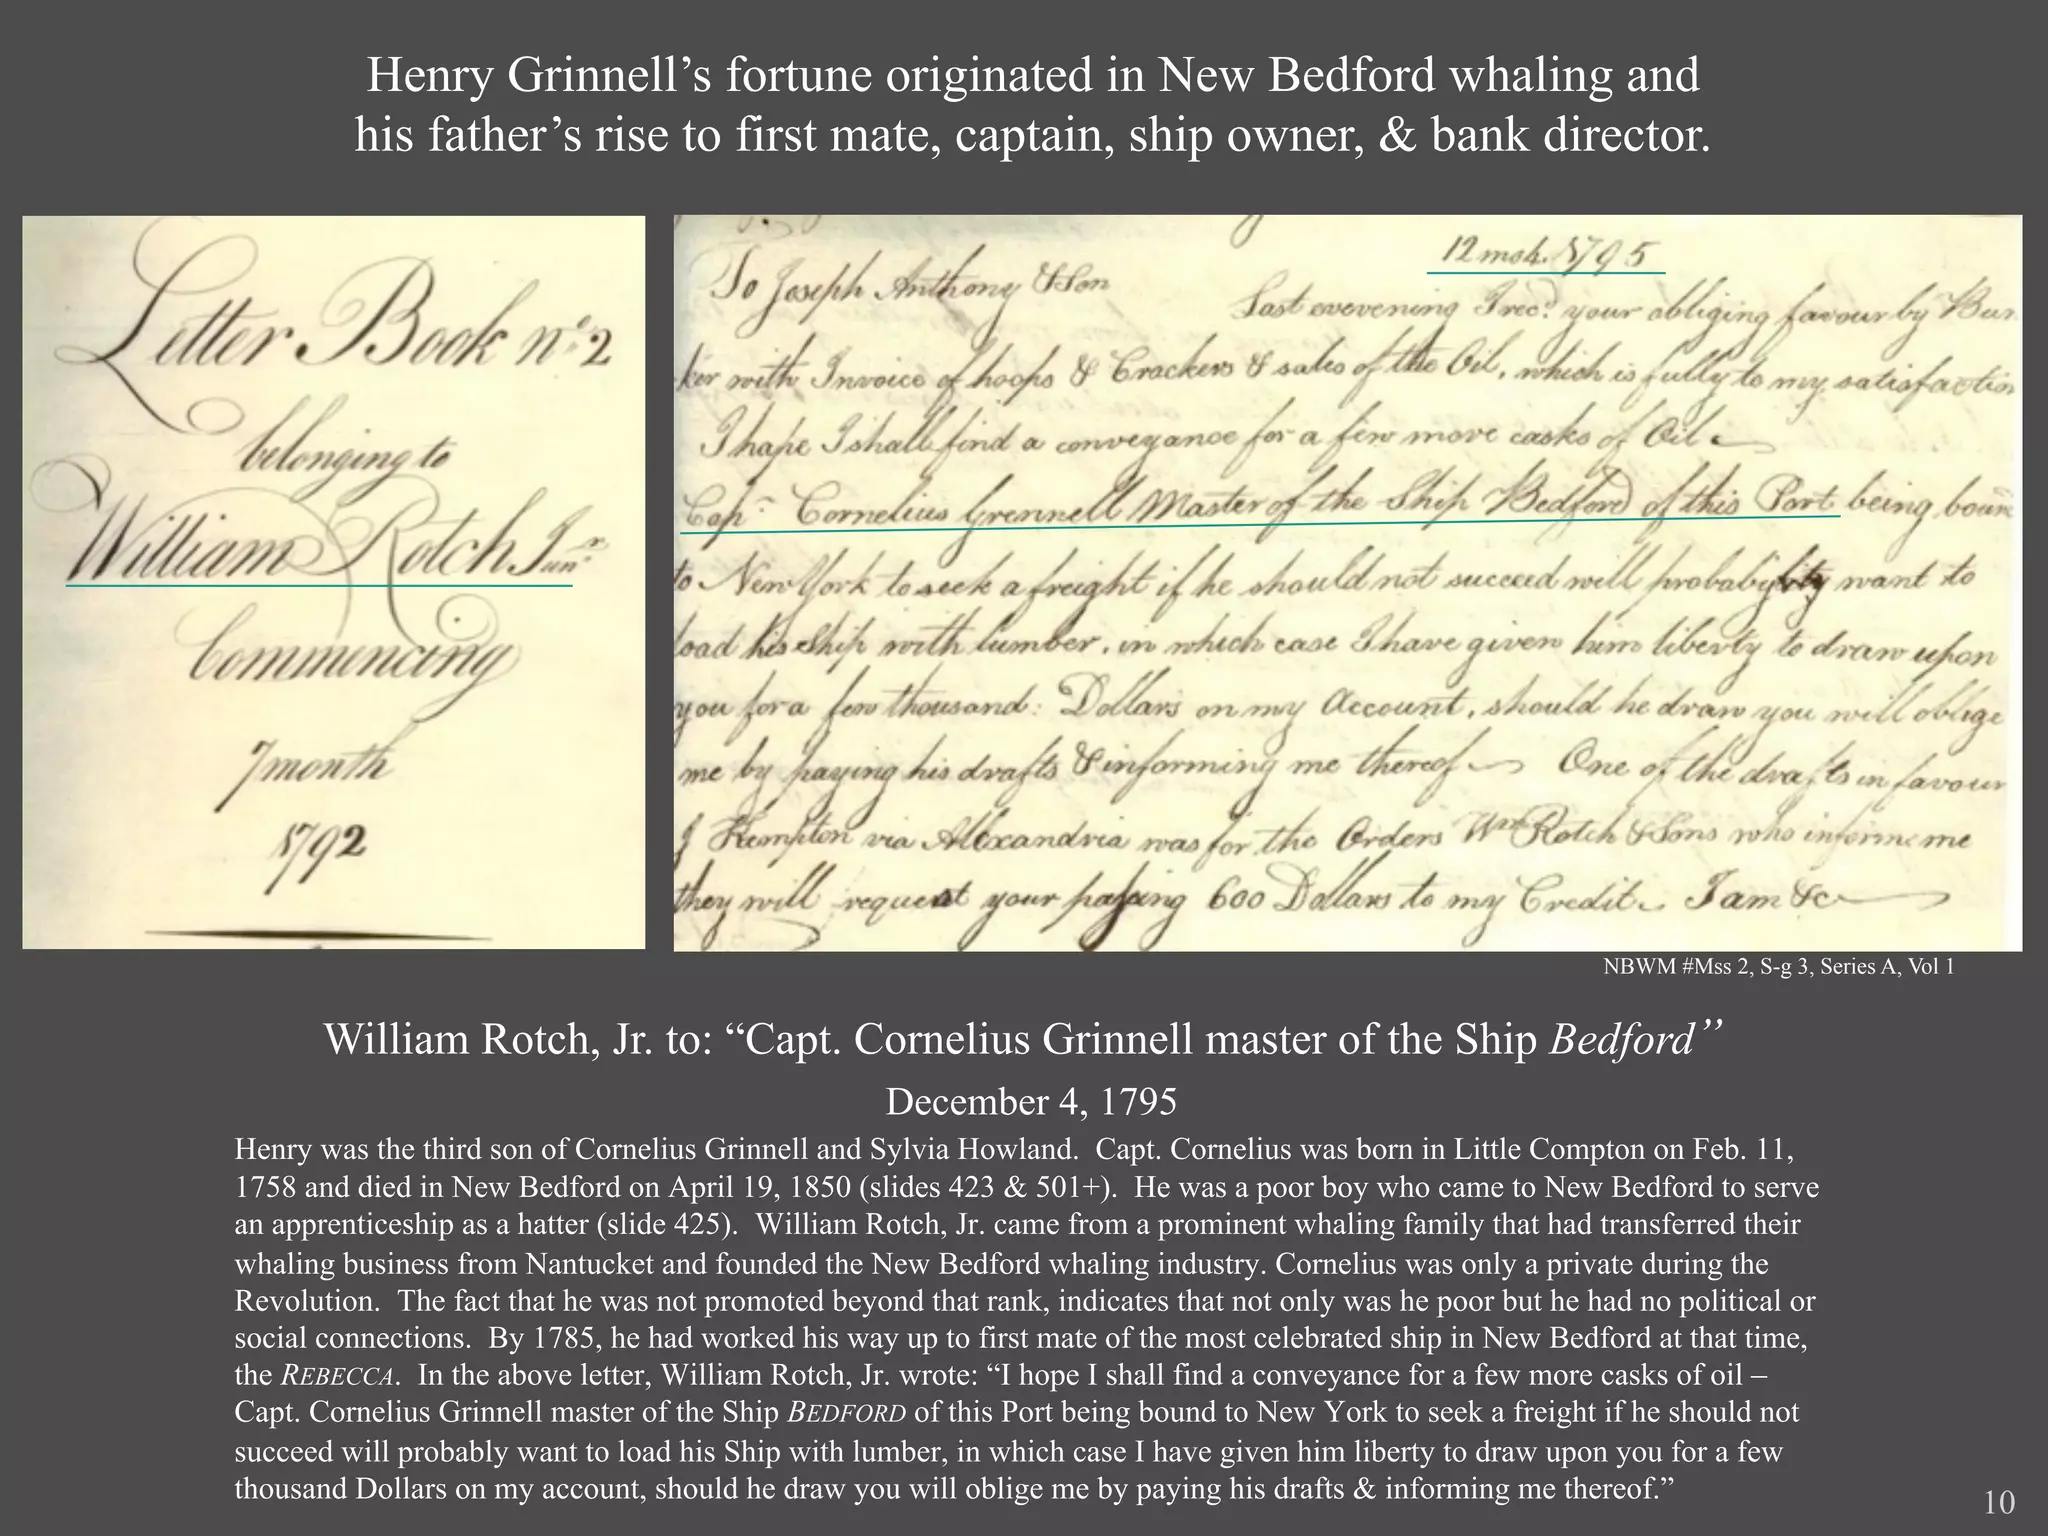 Henry Grinnell’s fortune originated in New Bedford whaling and
his father’s rise to first mate, captain, ship owner, & bank director.
Letter Book no. 2
belonging to
William Rotch Junr.
Commencing
7 month
1792
12 moh. 1795
To Joseph Anthony & Son
Last evevening I recd. your obliging favour by Bun
ker with Invoice of hoops & Crackers & sales of the Oil, which is fully to my satisfaction
I hope I shall find a conveyance for a few more casks of Oil
Capn. Cornelius Grennell Master of the Ship Bedford of this Port being boun
to New York to seek a freight if he should not succeed will probability want to
load his Ship with lumber, in which case I have given him liberty to draw upon
you for a few thousand: Dollars on my Account, should he draw you will oblige
me by paying his drafts & informing me thereof One of the drafts in favour
J Kempton via Alexandria was for the Orders Wm Rotch & Sons who informe me
they will request your paying 600 Dollars to my Credit. I am &c
NBWM #Mss 2, S-g 3, Series A, Vol 1
William Rotch, Jr. to: “Capt. Cornelius Grinnell master of the Ship Bedford”
December 4, 1795
Henry was the third son of Cornelius Grinnell and Sylvia Howland.  Capt. Cornelius was born in Little Compton on Feb. 11,
1758 and died in New Bedford on April 19, 1850 (slides 423 & 501+).  He was a poor boy who came to New Bedford to serve
an apprenticeship as a hatter (slide 425).  William Rotch, Jr. came from a prominent whaling family that had transferred their
whaling business from Nantucket and founded the New Bedford whaling industry. Cornelius was only a private during the
Revolution.  The fact that he was not promoted beyond that rank, indicates that not only was he poor but he had no political or
social connections.  By 1785, he had worked his way up to first mate of the most celebrated ship in New Bedford at that time,
the REBECCA.  In the above letter, William Rotch, Jr. wrote: “I hope I shall find a conveyance for a few more casks of oil –
Capt. Cornelius Grinnell master of the Ship BEDFORD of this Port being bound to New York to seek a freight if he should not
succeed will probably want to load his Ship with lumber, in which case I have given him liberty to draw upon you for a few
thousand Dollars on my account, should he draw you will oblige me by paying his drafts & informing me thereof.”
10